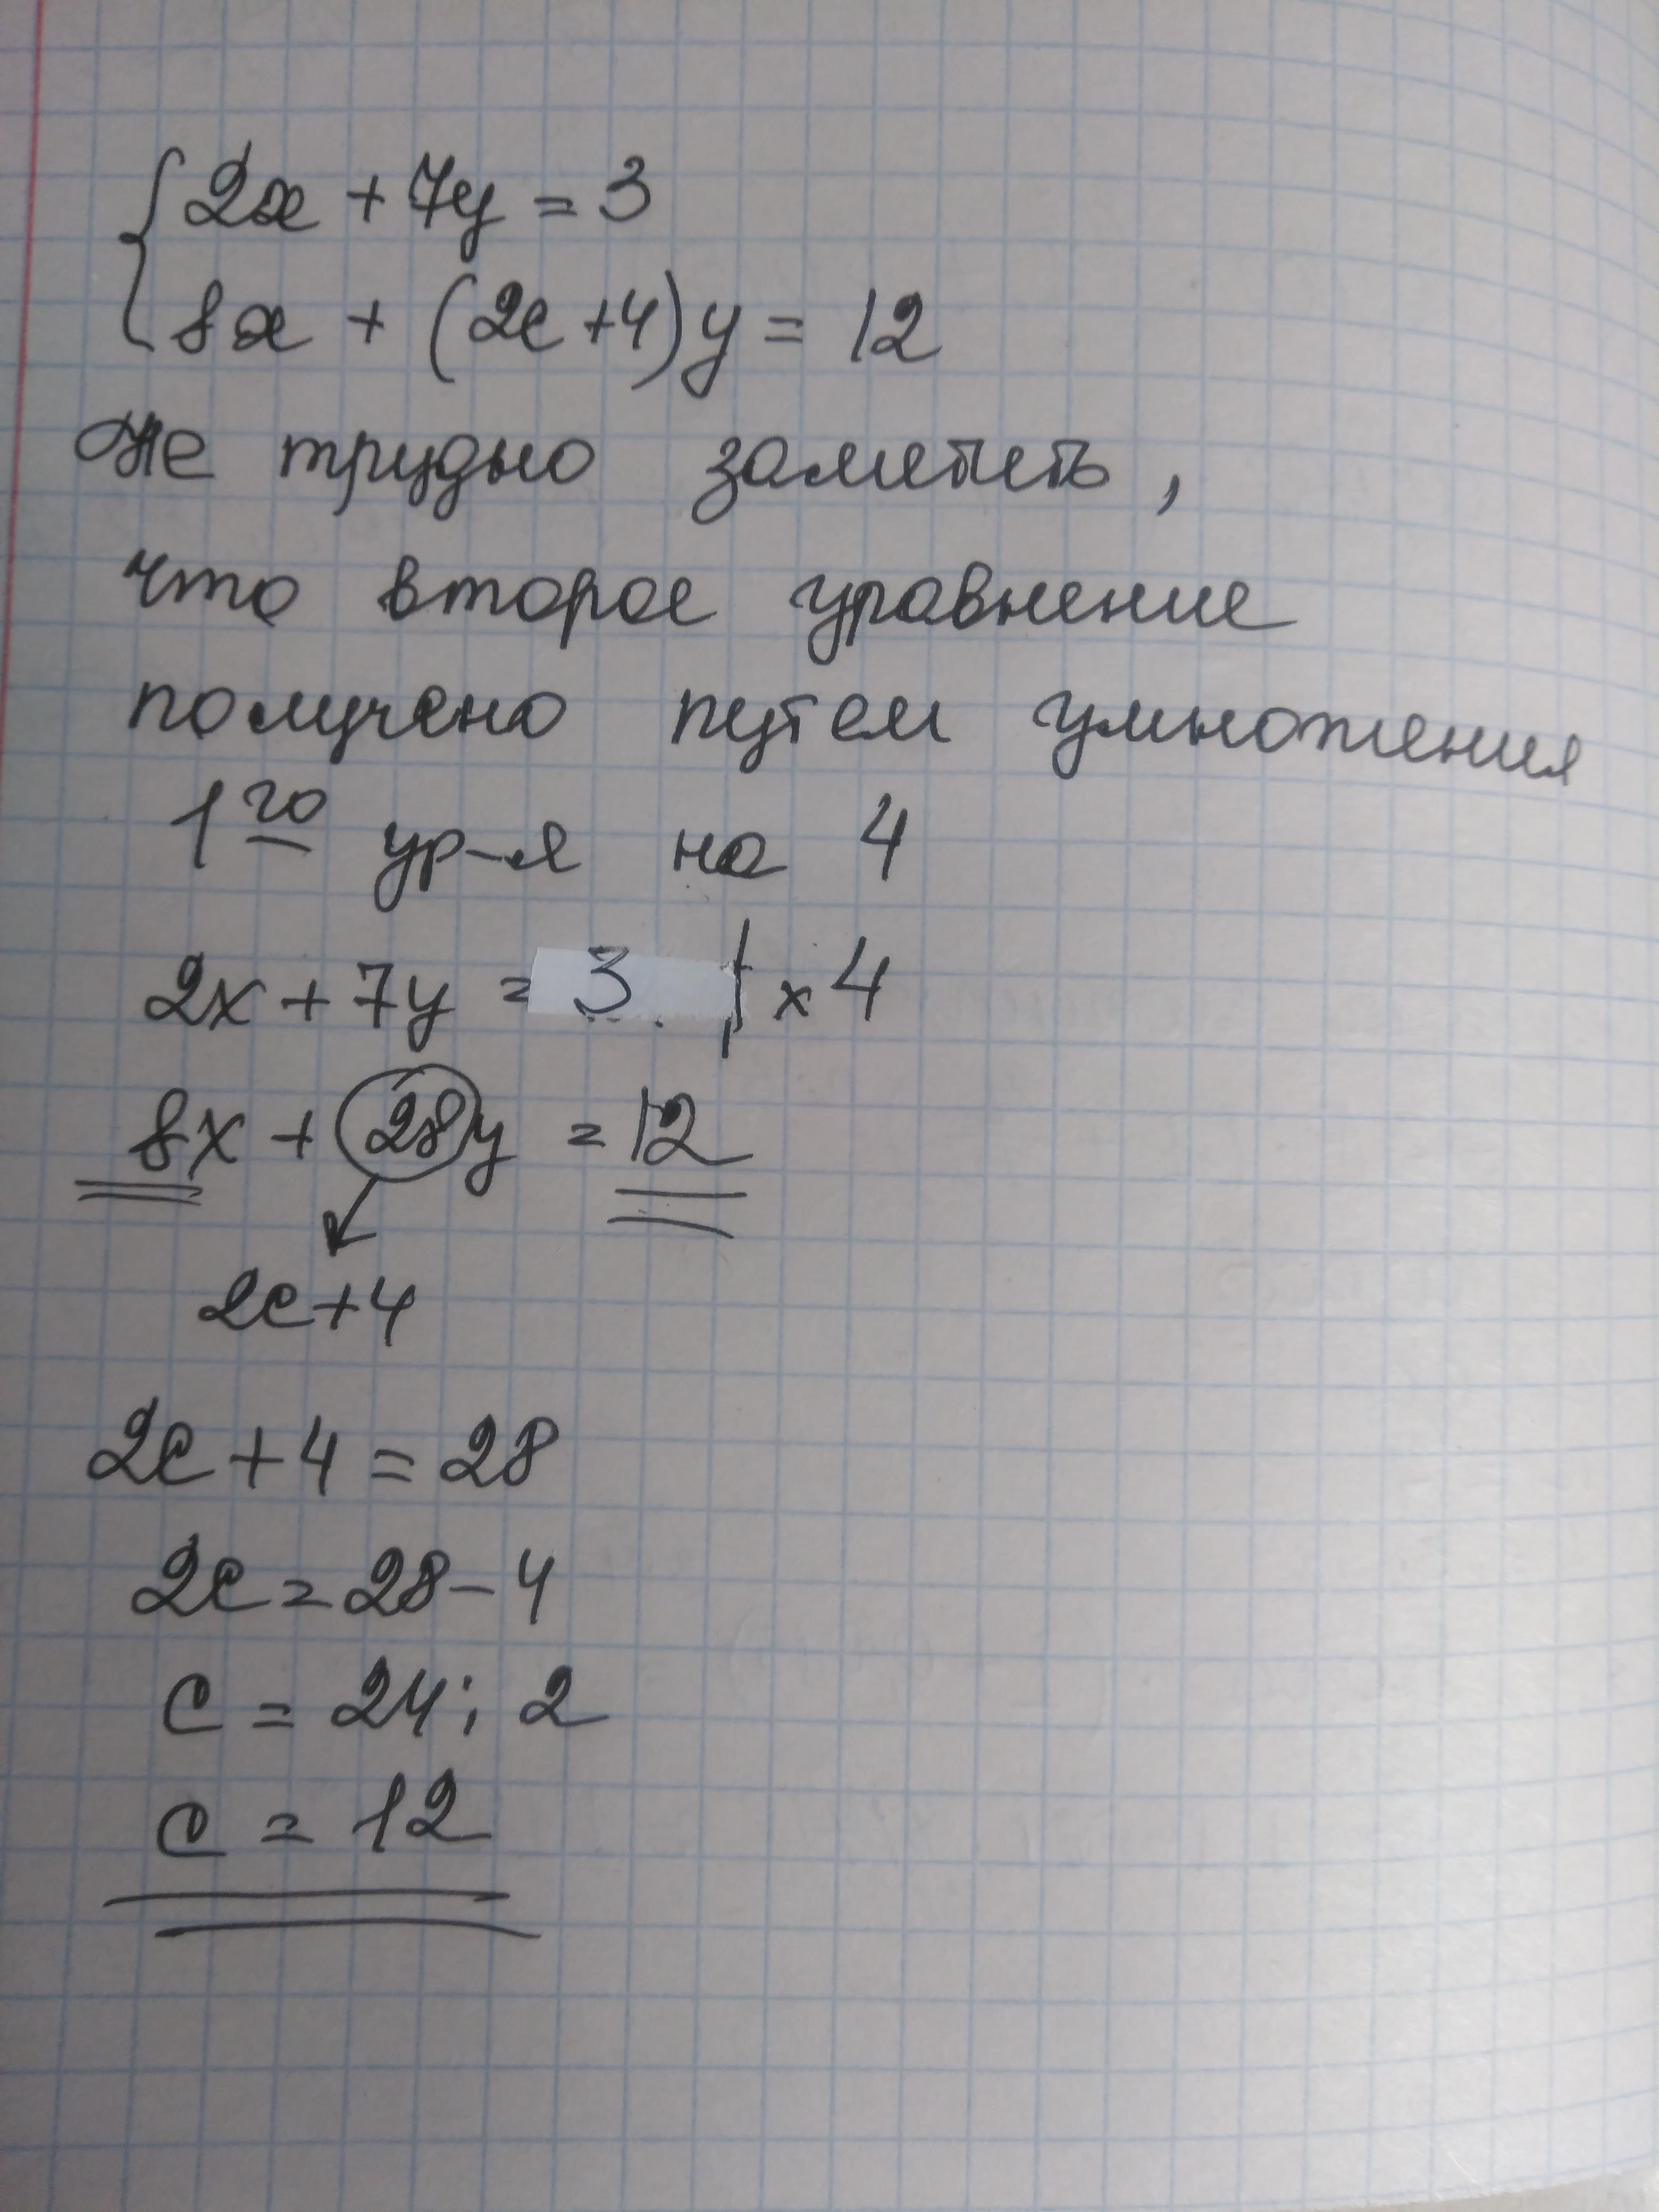 2x + 7y = 3
8x + (2c+4)y = 12
Не трудно заметить,
что второе уравнение
получено путем умножения
1го ур-я на 4
2x + 7y = 3 | x 4
8x + 28y = 12
2c+4
2c + 4 = 28
2c = 28 - 4
c = 24 : 2
c = 12